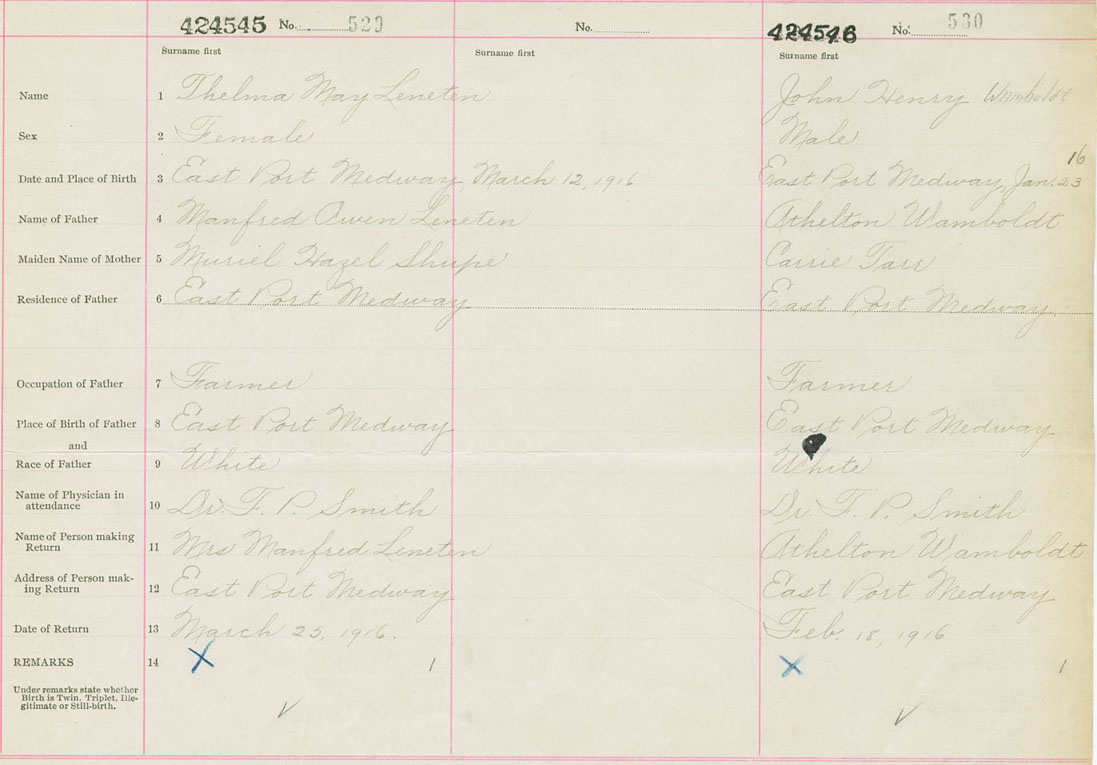 424545 No. 529 No. 424546 No. 530
Surname first Surname first Surname first
Name 1 Thelma May Leneten John Henry Wamboldt
Sex 2 Female Male
16
Date and Place of Birth 3 East Port Medway, March 12, 1916 East Port Medway, Jan. 23
Name of Father 4 Manfred Owen Leneten Athelton Wamboldt
Maiden Name of Mother 5 Muriel Hazel Shupe Carrie Tarr
Residence of Father 6 East Port Medway East Port Medway
Occupation of Father 7 Farmer Farmer
Place of Birth of Father 8 East Port Medway East Port Medway
and
Race of Father 9 White White
Name of Physician in
attendance 10 Dr. F. P. Smith Dr. F. P. Smith
Name of Person making
Return 11 Mrs Manfred Leneten Athelton Wamboldt
Address of Person mak-
ing Return 12 East Port Medway East Port Medway
Date of Return 13 March 25, 1916. Feb. 18, 1916
REMARKS 14 X 1 X 1
Under remarks state whether
Birth is Twin, Triplet, Ille-
gitimate or Still-birth.